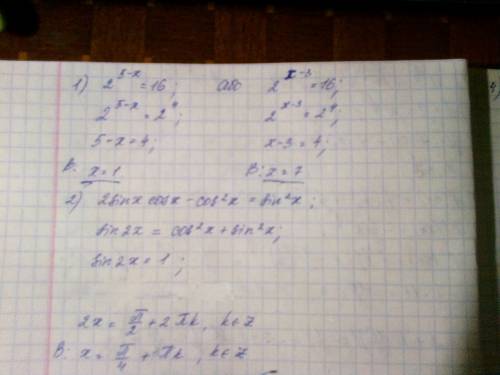 1) 2^{5-x} = 16; або 2^{x-3} = 16;
2^{5-x} = 2^4; 2^{x-3} = 2^4;
5-x = 4; x-3 = 4;
В: x = 1 В: x = 7
2) 2sinx cosx - cos²x = sin²x;
sin2x = cos²x + sin²x;
sin2x = 1;
2x = π/2 + 2πk, k∈Z
В: x = π/4 + πk, k∈Z